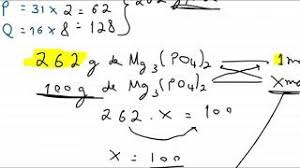 P = 31 × 2 = 62
Q = 16 × 8 = 128
262 g de Mg₃(PO₄)₂ 1m
100 g de Mg₃(PO₄)₂ Xm
262 . X = 100
X = 100